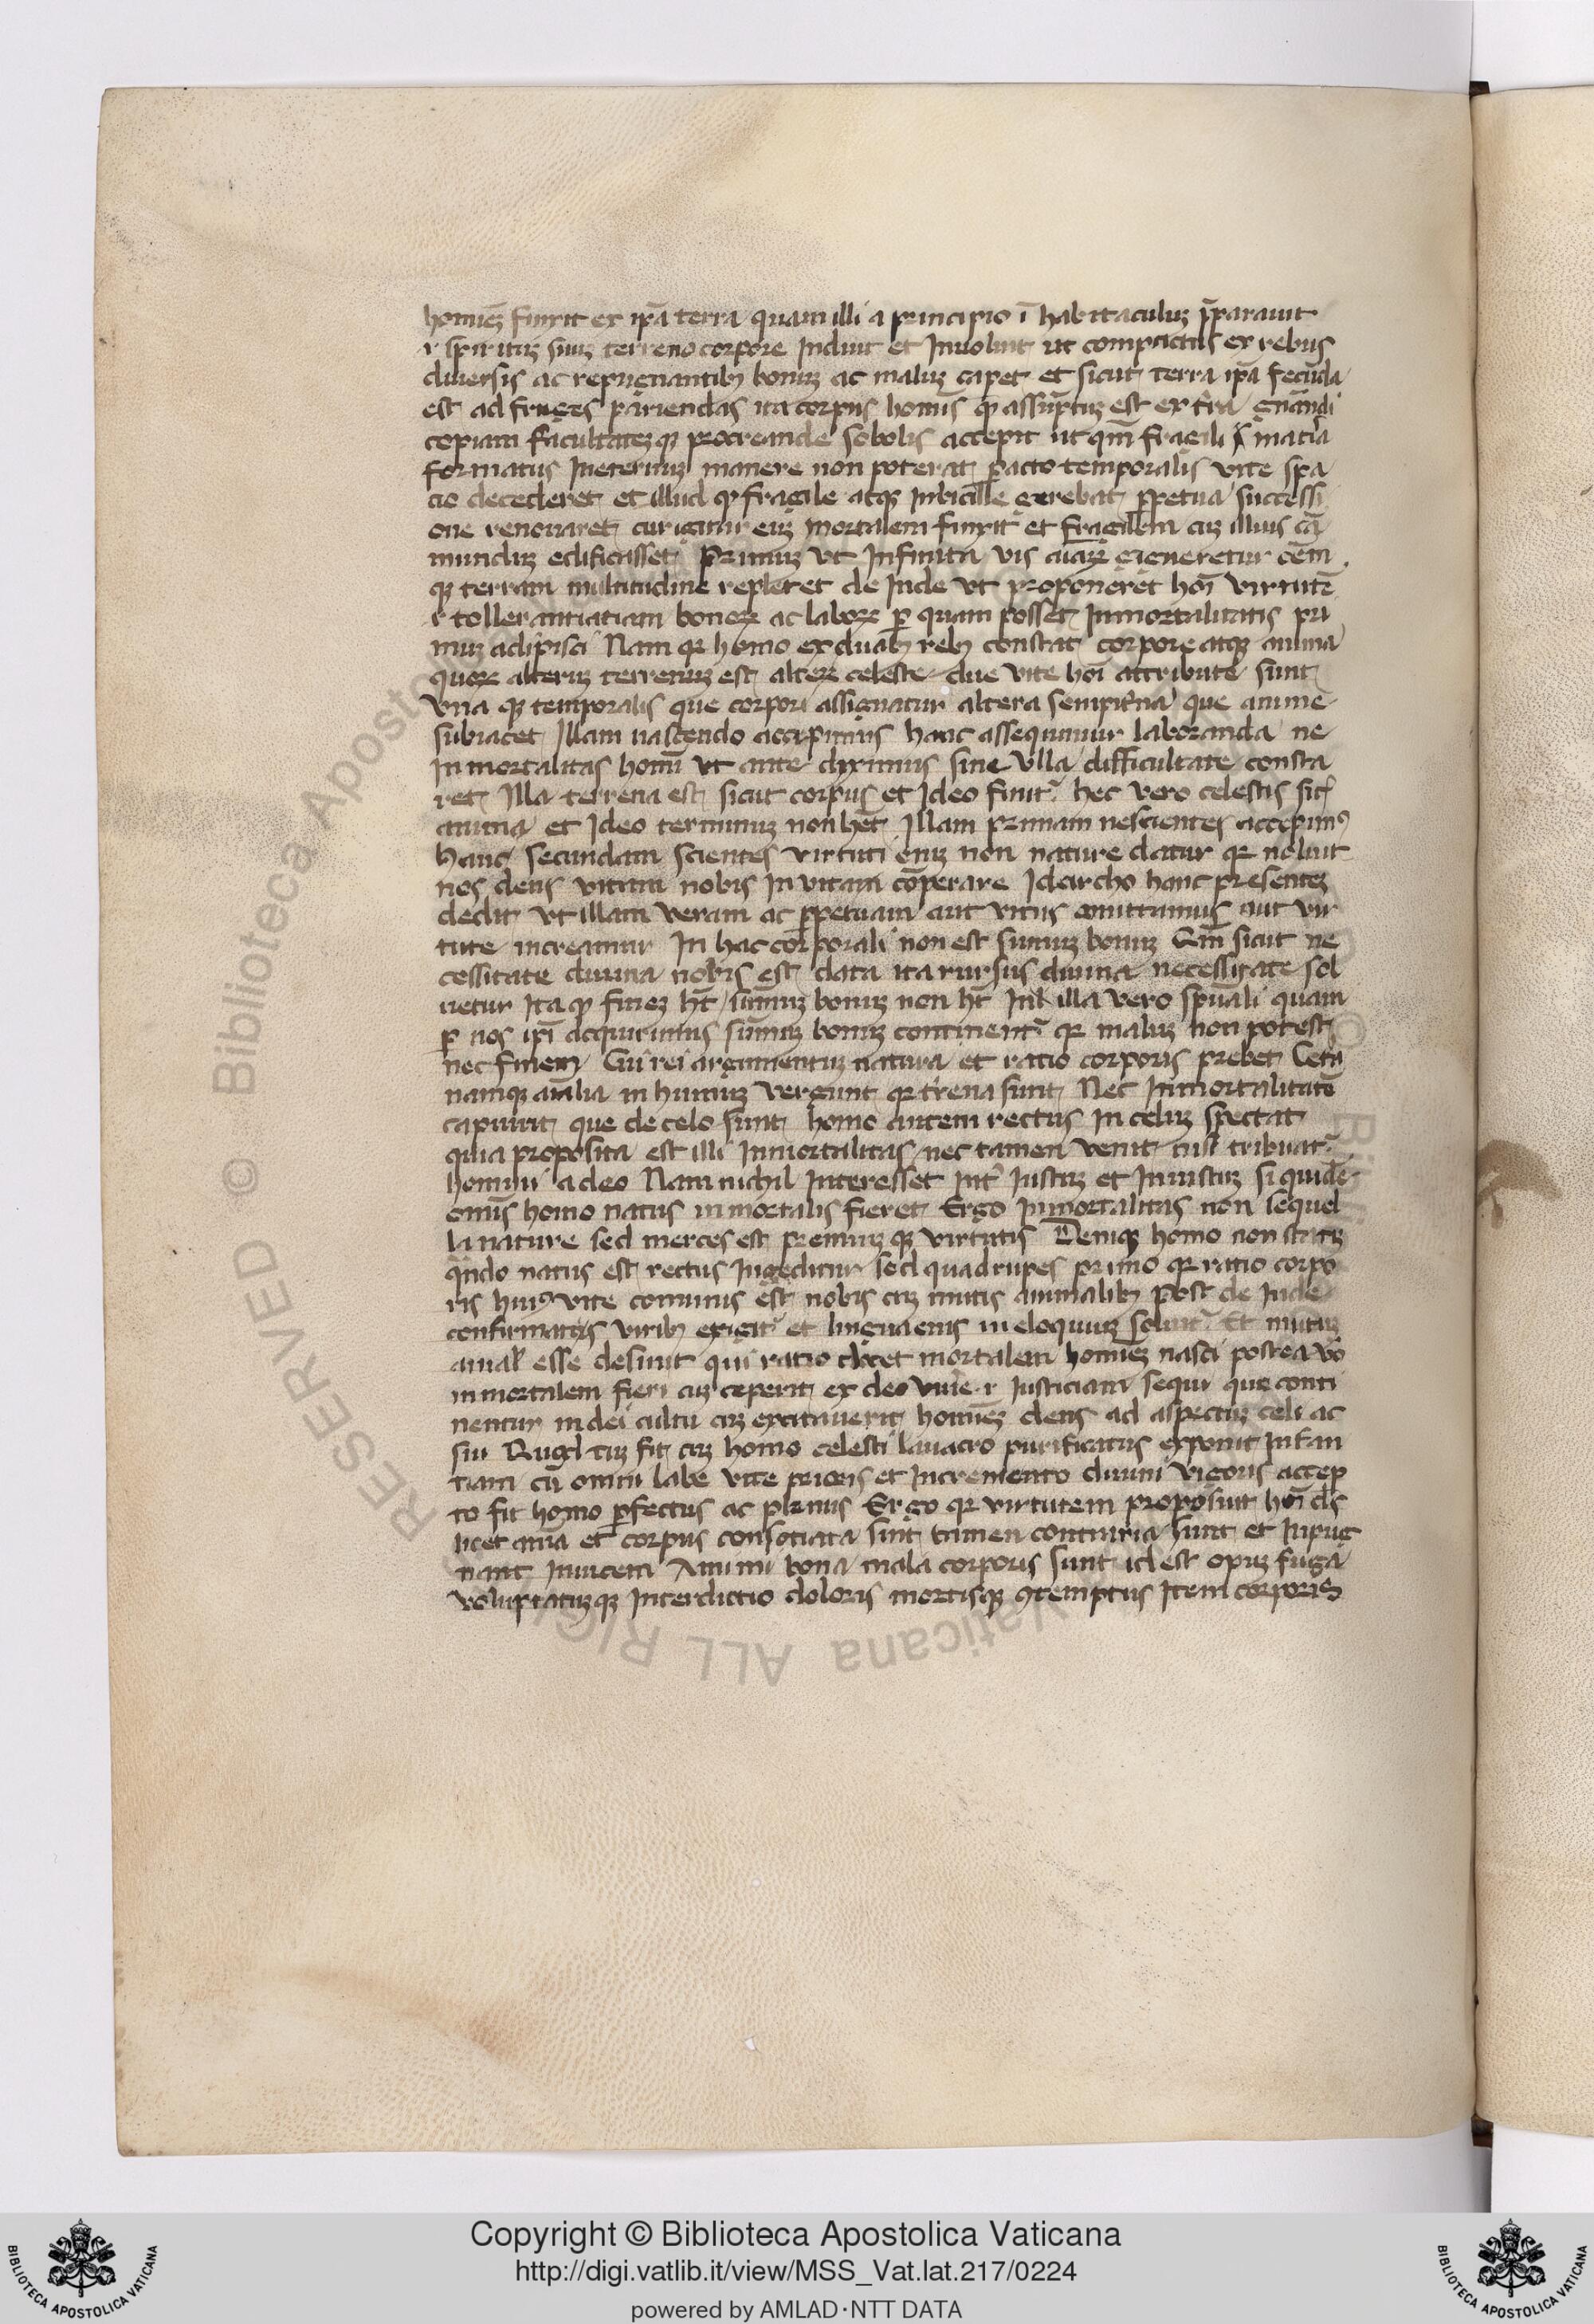 homineʒ finxit ex ip̄a terra quam illi a principio ī habitaculuʒ p̄parauit
⁊ spirituʒ suuʒ terreno corpore induit et inuoluit ut compactus ex rebus
diuersis ac repugnantibꝫ bonuʒ ac maluʒ capet et sicut terra ip̄a fecūda
est ad fruges pariendas ita corpus homīs ꝙ assūptuʒ est ex t̄ra gn̄andi
copiam facultateʒqꝫ procreande sobolis accepit ut qm̄ fragili materia
formatus ineternuʒ manere non poterat pacto temporalis vite spa
cio decederet et illud ꝙ fragile atqꝫ inbicille gerebat ꝑpetua successi
one renouaret cur igitur euʒ mortalem finxit et fragilem cuʒ illius cā
munduʒ edificasset Primuʒ vt infinita vis gigneretur oēm
qꝫ terram multitudine repleret de inde vt proponeret hoī virtutē
⁊ tollerantiatiam bonoꝝ ac laboꝝ ꝑ quam posset inmortalitatis pri
muʒ adipisci Nam qꝛ homo ex duabꝫ rebꝫ constat corpore atqꝫ anima
quoꝝ alteruʒ terrenuʒ est alteꝝ celeste due vite hoī attribute sunt
vna qꝫ temporalis que corpori assignatur altera sempit̄na que anime
subiacet Illam nascendo accipimus hanc assequimur laboranda ne
inmortalitas homī vt ante diximus sine vlla difficultate consta
ret Illa terrena est sicut corpus et ideo finit᷑ hec vero celestis sic̄
anima et ideo terminuʒ non hēt Illam primam nescientes accepimꝰ
hanc secundam scientes virtuti eniʒ non nature datur qꝛ noluit
nos deus vitam nobis in vitam cōperare Idcircho hanc presenteʒ
dedit vt illam veram ac ꝑpetuam aut vitiis amittamus aut vir
tute increamur In hac corporali non est sumuʒ bonuʒ Qm̄ sicut ne
cessitate diuina nobis est data ita rursus diuina necessitate sol
uetur Ita ꝙ fineʒ ht̄ sūmuʒ bonuʒ non ht̄ In illa vero spūali quam
ꝑ nos ip̄i acquirimus sūmuʒ bonuʒ continent᷑ qꝛ maluʒ non potest
nec finem Cui rei argumentuʒ natura et ratio corporis prebet Cet̄a
namqꝫ aīalia in humuʒ vergunt qꝛ t̄rena sunt Nec inmortalitatē
capiunt que de celo sunt homo autem rectus in celuʒ spectat
quia proposita est illi inmortalitas nec tamen venit nisi tribuat᷑
homini a deo Nam nichil interesset int̄ iustuʒ et iniustuʒ si quidē
omīs homo natus inmortalis fieret Ergo inmortalitas non sequel
la nature sed merces est premiuʒ qꝫ virtutis Deniqꝫ homo non statiʒ
qn̄do natus est rectus ingeditur sed quadrupes primo qꝛ ratio corpo
ris huiꝰ vite comunis est nobis cuʒ mutis animalibꝫ Post de inde
confirmatis viribꝫ erigit᷑ et lingua eius in eloquiuʒ soluit᷑ Et mutuʒ
aīal esse desinit qui ratio docet mortalem homineʒ nasci postea vō
inmortalem fieri cuʒ ceperit ex deo viuere ⁊ iusticiam sequi que conti
nentur in dei cultu cuʒ excitauerit homineʒ deus ad aspectuʒ celi ac
sui Quod tuʒ fit cuʒ homo celesti lauacro purificatus exponit infan
tiam cū omni labe vite prioris et incremento diuini vigoris accep
to fit homo ꝑfectus ac plenus Ergo qꝛ virtutem proposuit hoī ds̄
licet aīa et corpus consotiata sint tamen contraria sunt et inpug
nant inuicem Animi bona mala corporis sunt id est opuʒ fuga
voluptatuʒqꝫ interdictio doloris mortisqꝫ ꝯtemptus Item corporis
Copyright © Biblioteca Apostolica Vaticana
http://digi.vatlib.it/view/MSS_Vat.lat.217/0224
powered by AMLAD·NTT DATA